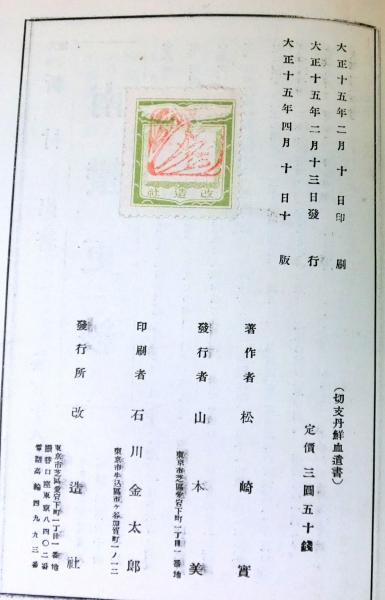 大正十五年二月十日印刷
大正十五年二月十三日發行
大正十五年四月十日十版
改造社
(切支丹鮮血遺書)
定價三圓五十錢
著作者 松崎實
東京市芝區愛宕下町一丁目一番地
發行者 山本美
東京市牛込區市ヶ谷加賀町一ノ一二
印刷者 石川金太郎
發行所 改造社
東京市芝區愛宕下町一丁目一番地
振替口座東京八四〇二番
電話高輪四九九三番